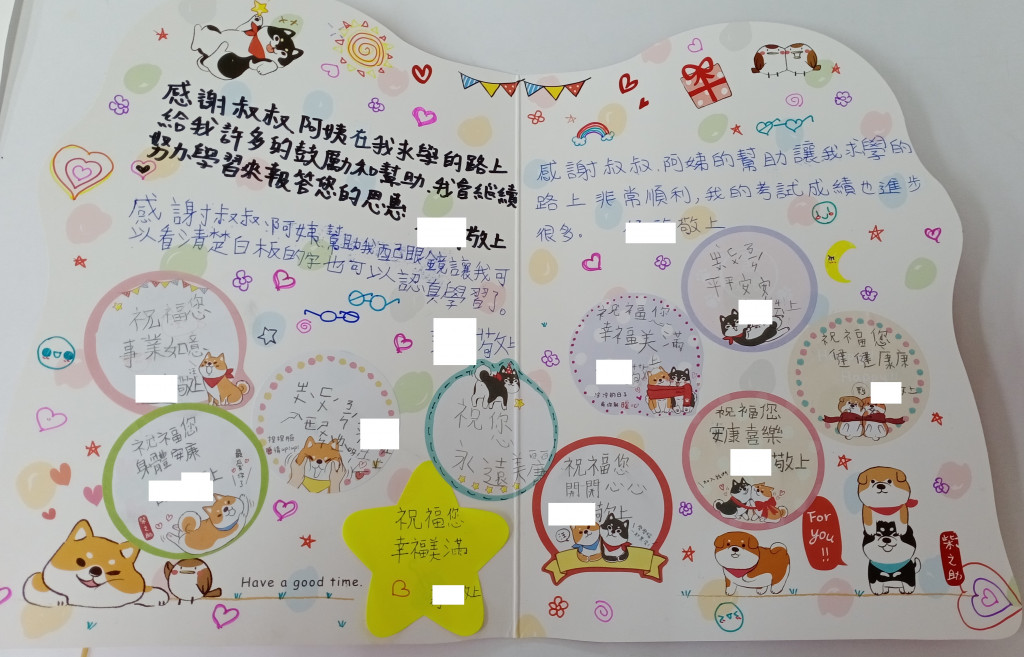 感謝叔叔阿姨在我求學的路上
給我許多的鼓勵和幫助.我會繼續
努力學習來報答您的恩惠
敬上
感謝叔叔、阿姨幫助我配眼鏡讓我可
以看清楚白板的字也可以認真學習了。
敬上
祝福您
事業如意
敬上
祝福您
身體安康
敬上
祝您
永遠美麗
祝福您
幸福美滿
敬上
Have a good time.
感謝叔叔.阿姨的幫助讓我求學的
路上非常順利,我的考試成績也進步
很多。
敬上
平平安安
敬上
祝福你
幸福美滿
敬上
祝福您
健健康康
敬上
祝福您
安康喜樂
敬上
祝福您
開開心心
敬上
For
you
!!
柴之助